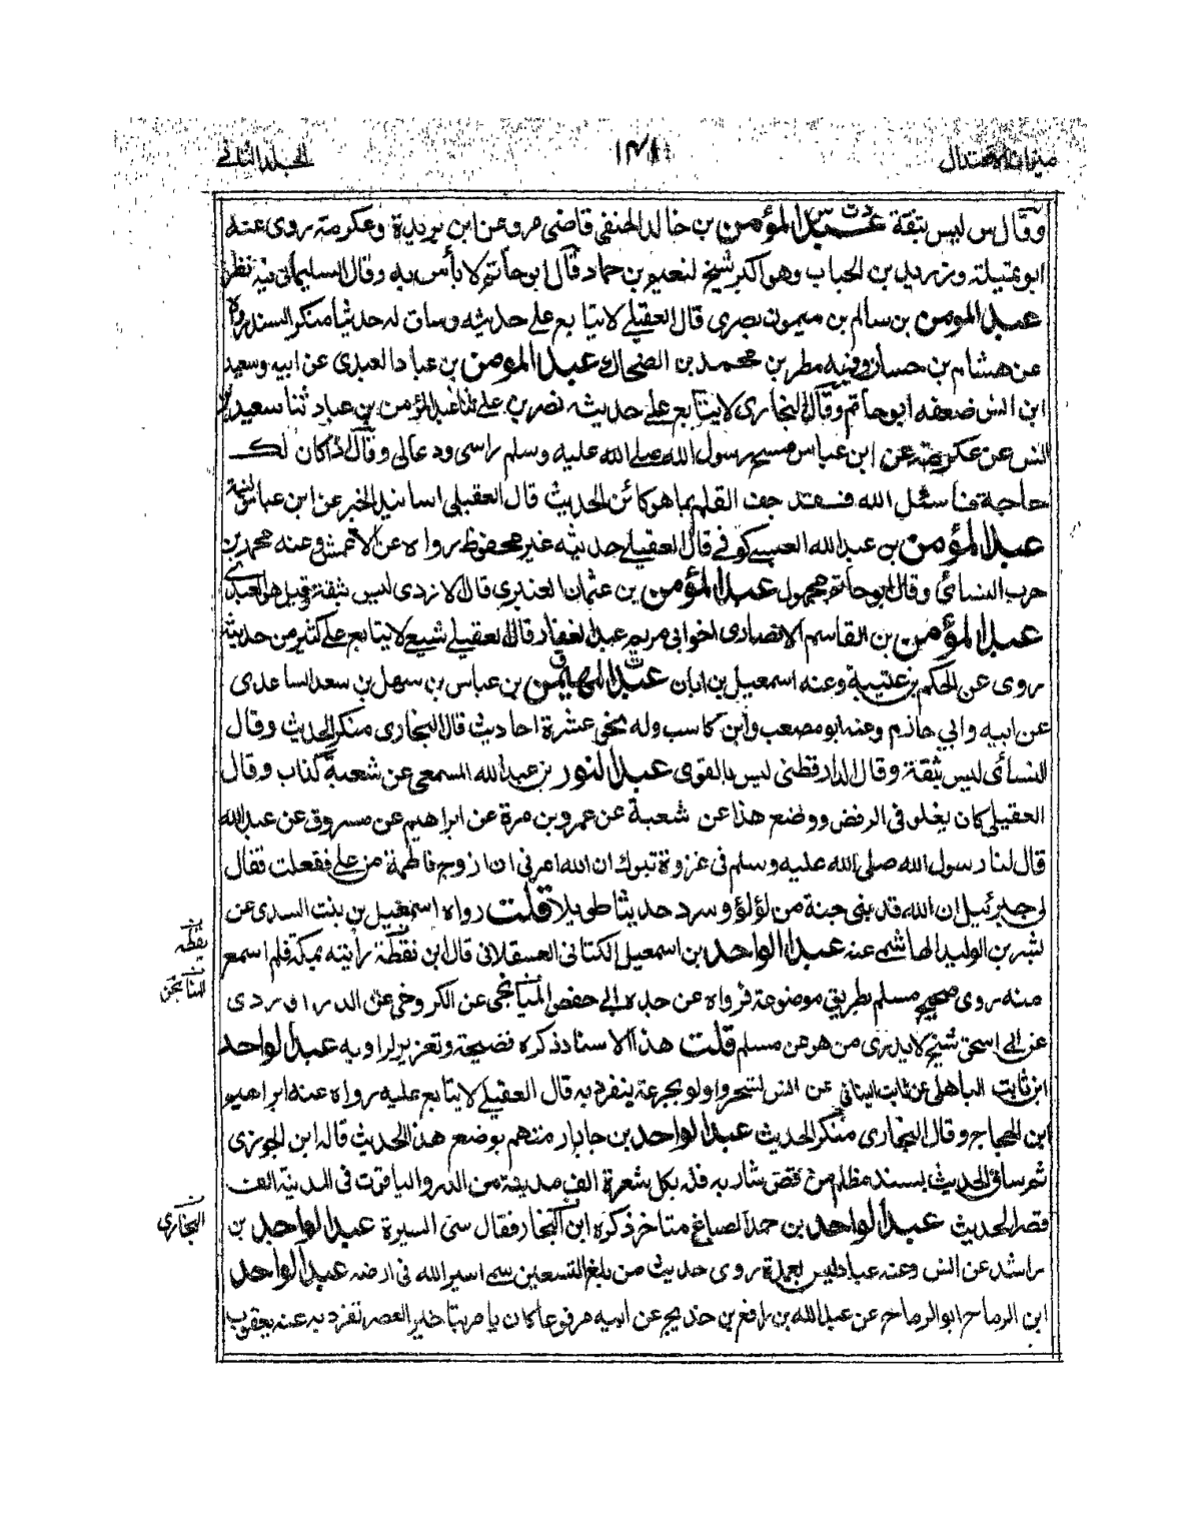 ميزان الاعتدال
١٤١
الجلد الثانى
وقال س ليس بثقة عبد المؤمن بن خالد الحنفى قاضى مرو عن ابن بريدة وعكرمة روى عنه
ابو تميلة وزيد بن الحباب وهو اكبر شيخ لنعيم بن حماد قال ابو حاتم لا بأس به وقال السليمانى فيه نظر
عبد المؤمن بن سالم بن ميمون بصرى قال العقيلى لا يتابع على حديثه وساق له حديثا منكر السند رواه
عن هشام بن حسان وفيه مطر بن محمد بن الضحاك عبد المؤمن بن عباد العبدى عن ابيه وسعيد
ابن انس ضعفه ابو حاتم وقال البخارى لا يتابع على حديثه نصر بن على ثنا عبد المؤمن بن عباد ثنا سعيد بن
انس عن عكرمة عن ابن عباس مسح رسول الله صلى الله عليه وسلم راسى ودعالى وقال اذا كان لك
حاجة فاسئل الله فقد جف القلم بما هو كائن الحديث قال العقيلى اسانيد الخبر عن ابن عباس لينة
عبد المؤمن بن عبد الله العبسى كوفى قال العقيلى حديثه غير محفوظ رواه عن الاعمش وعنه محمد بن
حرب النسائى وقال ابو حاتم مجهول عبد المؤمن بن عثمان العنبرى قال الازدى ليس بثقة وقيل هو العبدى
عبد المؤمن بن القاسم الانصارى اخو ابى مريم عبد الغفار قال العقيلى شيعى لا يتابع على كثير من حديثه
روى عن الحكم بن عتيبة وعنه اسمعيل بن ابان عبد المهيمن بن عباس بن سهل بن سعد الساعدى
عن ابيه وابي حازم وعنه ابو مصعب وابن كاسب وله نحو عشرة احاديث قال البخارى منكر الحديث وقال
النسائى ليس بثقة وقال الدارقطنى ليس بالقوى عبد النور بن عبد الله المسمعى عن شعبة كذاب وقال
العقيلى كان يغلو فى الرفض ووضع هذا عن شعبة عن عمرو بن مرة عن ابراهيم عن مسروق عن عبد الله
قال لنا رسول الله صلى الله عليه وسلم فى غزوة تبوك ان الله امرنى ان ازوج فاطمة من على ففعلت فقال
لى جبرئيل ان الله قد بنى جنة من لؤلؤ وسرد حديثا طويلا قلت رواه اسمعيل بن بنت السدى عن
بشر بن الوليد الهاشمى عنه عبد الواحد بن اسمعيل الكتانى العسقلانى قال ابن نقطة رأيته بمكة فلم اسمع
منه روى صحيح مسلم بطريق موضوعة فرواه عن جده ابى حفص الميانجى عن الكروخى عن الدراوردى
عن ابى اسحق شيخ لا يدرى من هو عن مسلم قلت هذا الاسناد ذكره فضيحة وتعزير لراويه عبد الواحد
ابن ثابت الباهلى عن ثابت البنانى عن انس لتسحروا ولو بجرعة ينفرد به قال العقيلى لا يتابع عليه رواه عنه ابراهيم
ابن الحجاج وقال البخارى منكر الحديث عبد الواحد بن جابار متهم بوضع هذا الحديث قاله ابن الجوزى
ثم ساق الحديث بسند مظلم من قص شاربه فله بكل شعرة الف مدينة من الدر والياقوت فى المدينة الف
قصر الحديث عبد الواحد بن حمد الصباغ متاخر ذكره ابن النجار فقال سئ السيرة عبد الواحد بن
راشد عن انس وعنه عباد ليس بعمدة روى حديث من بلغ التسعين سمى اسير الله فى ارضه عبد الواحد
ابن الرماح ابو الرماح عن عبد الله بن رافع بن خديج عن ابيه مرفوعا كان يامر بتاخير العصر تفرد به عنه يعقوب
نقطه
البخارى